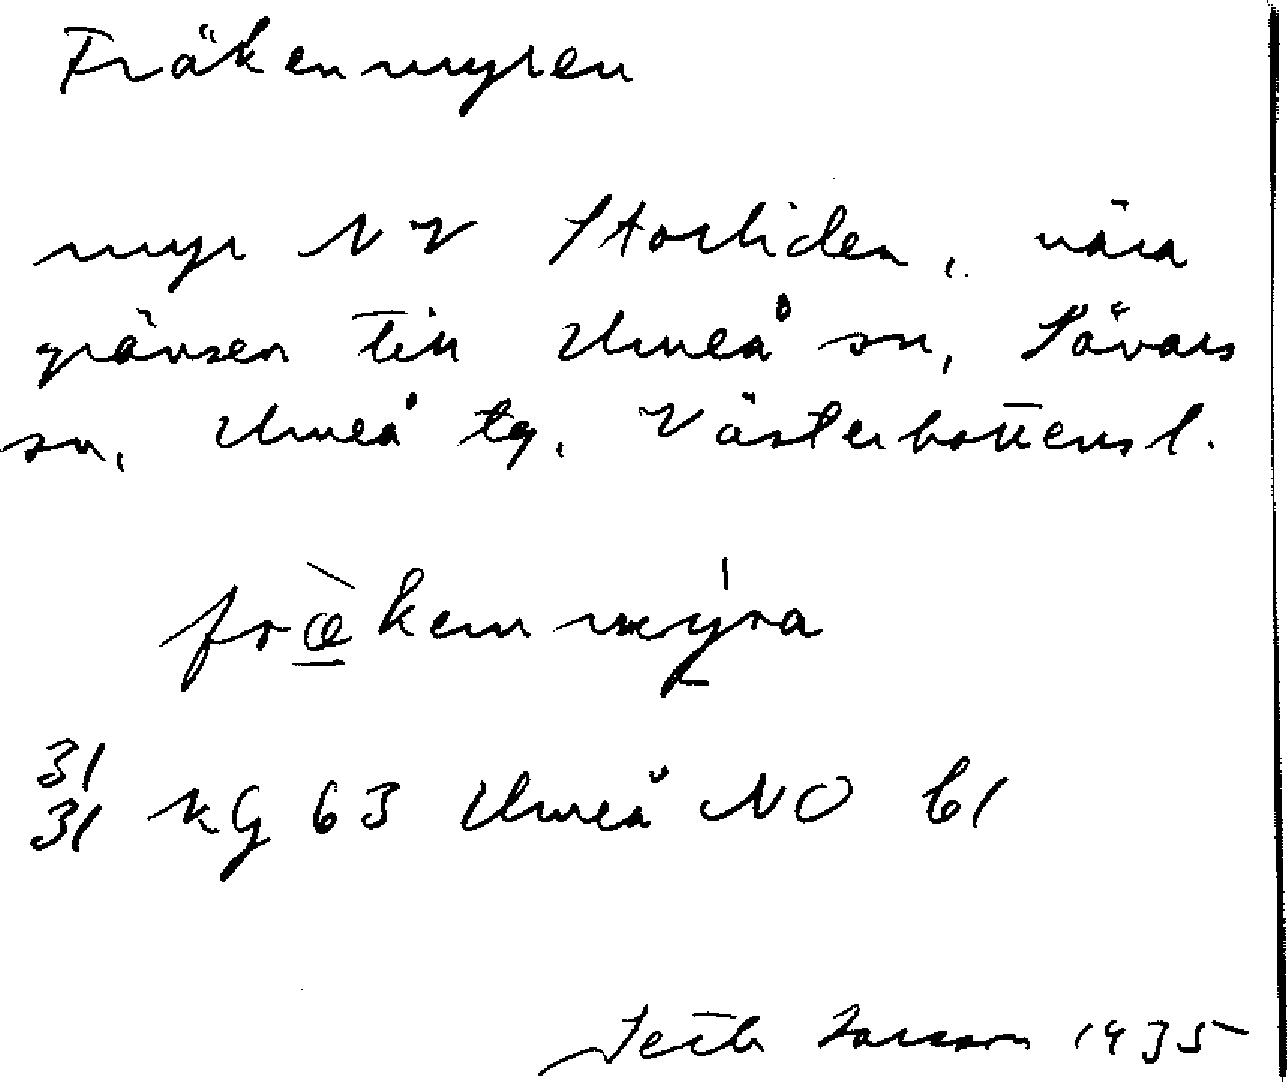 Fräkenmyren
myr NV Storliden, nära
gränsen till Umeå sn, Sävars
sn, Umeå tg. Västerbottens l.
fræ̀kenmýra
31
31 KG 63 Umeå NO 61
Larsson 1935